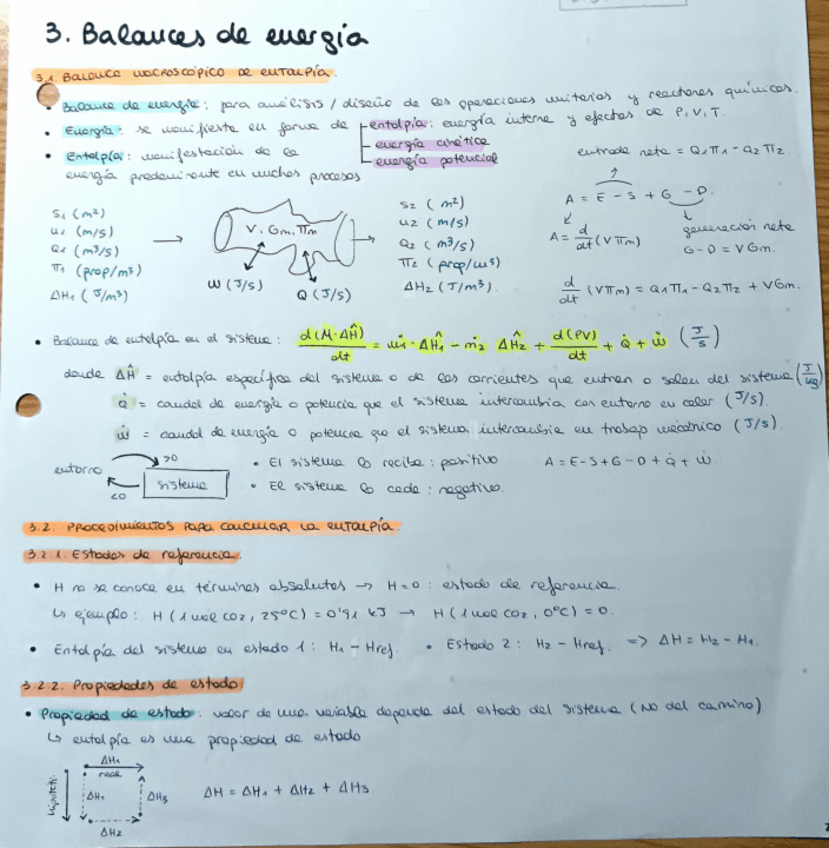 3. Balances de energía
3.1 Balance macroscópico de entalpía.
• Balance de energía: para análisis / diseño de las operaciones unitarias y reactores químicos.
• Energía: se manifiesta en forma de entalpía: energía interna y efectos de P, V, T.
energía cinética
energía potencial
• Entalpía: manifestación de la
energía predominante en muchos procesos
entrada neta = Q1 Π1 - Q2 Π2
A = E - S + G - D.
A = d/dt (V Πm)
generación neta
G - D = V Gm.
d/dt (V Πm) = Q1 Π1 - Q2 Π2 + V Gm.
S1 (m²)
u1 (m/s)
Q1 (m³/s)
Π1 (prop/m³)
ΔH1 (J/m³)
V, Gm, Πm
W (J/s)
Q (J/s)
S2 (m²)
u2 (m/s)
Q2 (m³/s)
Π2 (prop/m³)
ΔH2 (J/m³).
• Balance de entalpía en el sistema: d(M·ΔĤ)/dt = ṁ1 · ΔĤ1 - ṁ2 ΔĤ2 + d(PV)/dt + Q̇ + ẇ (J/s)
donde ΔĤ = entalpía específica del sistema o de las corrientes que entran o salen del sistema (J/kg)
Q̇ = caudal de energía o potencia que el sistema intercambia con entorno en calor (J/s).
ẇ = caudal de energía o potencia que el sistema intercambia en trabajo mecánico (J/s).
entorno >0
<0 sistema
• El sistema lo recibe: positivo
• El sistema lo cede: negativo.
A = E - S + G - D + Q̇ + ẇ
3.2. Procedimientos para calcular la entalpía
3.2.1. Estados de referencia.
• H no se conoce en términos absolutos → H = 0: estado de referencia.
↳ ejemplo: H (1 mol CO2, 25ºC) = 0'91 kJ → H (1 mol CO2, 0ºC) = 0.
• Entalpía del sistema en estado 1: H1 - Href. • Estado 2: H2 - Href. => ΔH = H2 - H1.
3.2.2. Propiedades de estado
• Propiedad de estado: valor de una variable depende del estado del sistema (NO del camino)
↳ entalpía es una propiedad de estado
ΔH1
real
hipotéti.
ΔH1
ΔH3
ΔH2
ΔH = ΔH1 + ΔH2 + ΔH3